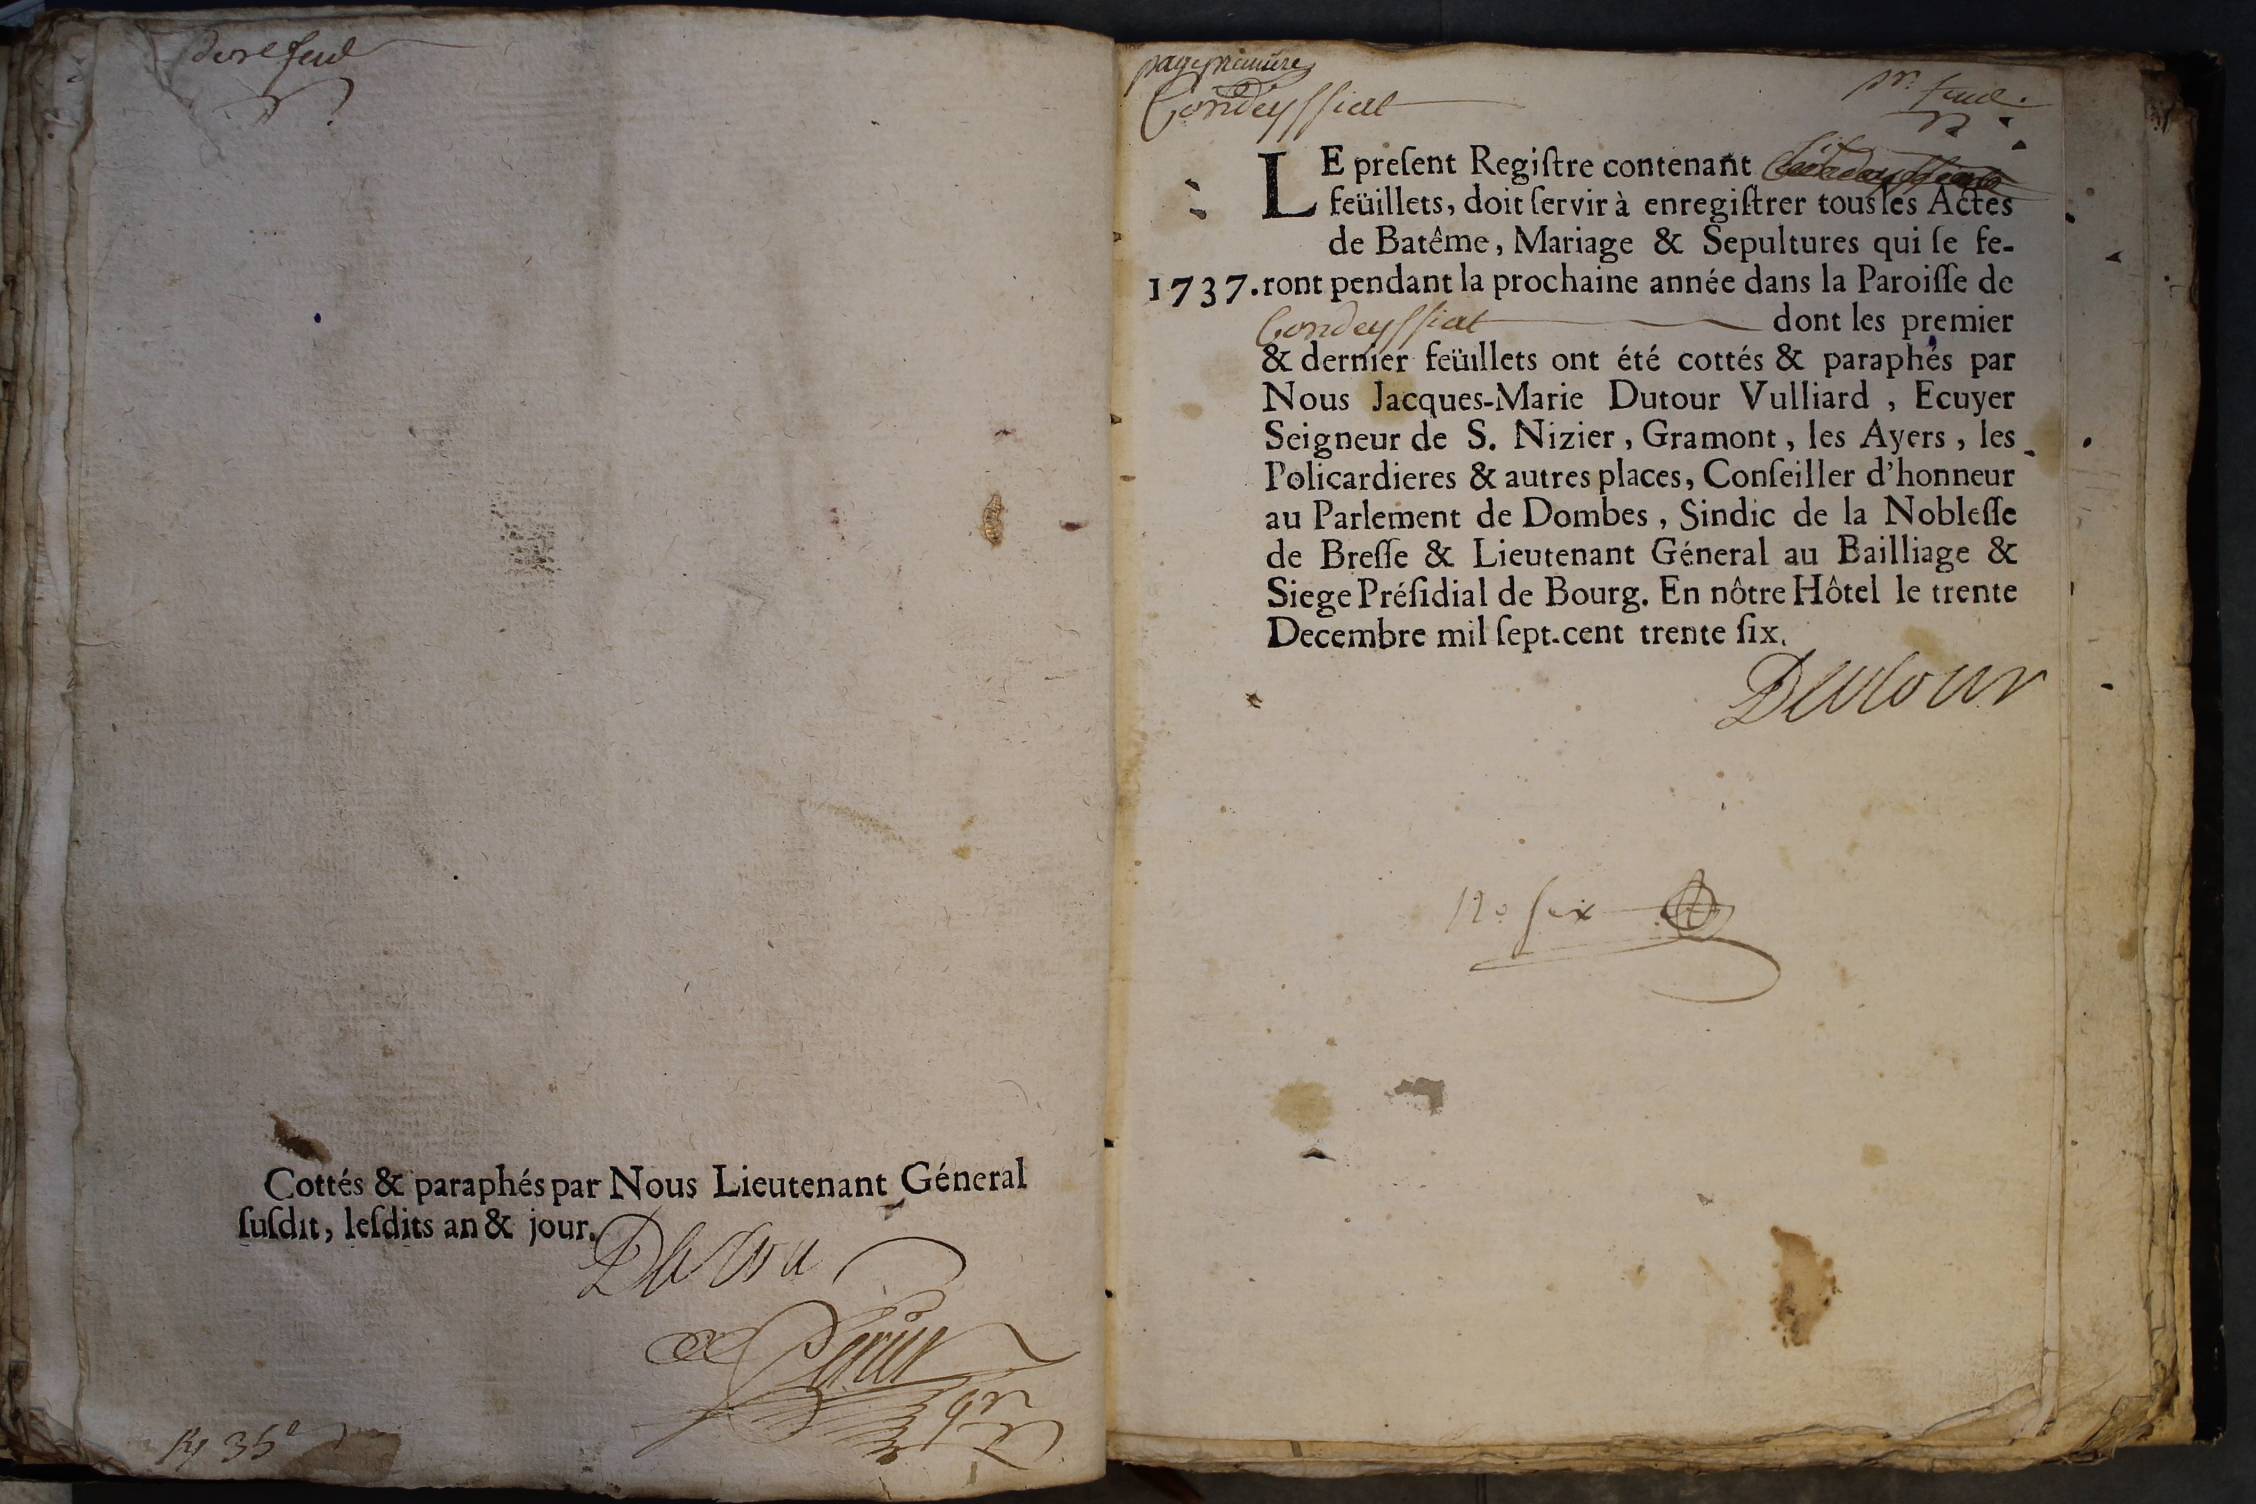 Cottés & paraphés par Nous Lieutenant Géneral
ſuſdit, leſdits an & jour.
page premiere
Condeyssiat
pr. feuil.
LE preſent Regiſtre contenant
feüillets, doit ſervir à enregiſtrer tous les Actes
de Batême, Mariage & Sepultures qui ſe fe-
1737. ront pendant la prochaine année dans la Paroiſſe de
Condeyssiat dont les premier
& dernier feüillets ont été cottés & paraphés par
Nous Jacques-Marie Dutour Vulliard, Ecuyer
Seigneur de S. Nizier, Gramont, les Ayers, les
Policardieres & autres places, Conſeiller d'honneur
au Parlement de Dombes, Sindic de la Nobleſſe
de Breſſe & Lieutenant Géneral au Bailliage &
Siege Préſidial de Bourg. En nôtre Hôtel le trente
Decembre mil ſept-cent trente ſix.
Dutour
No six